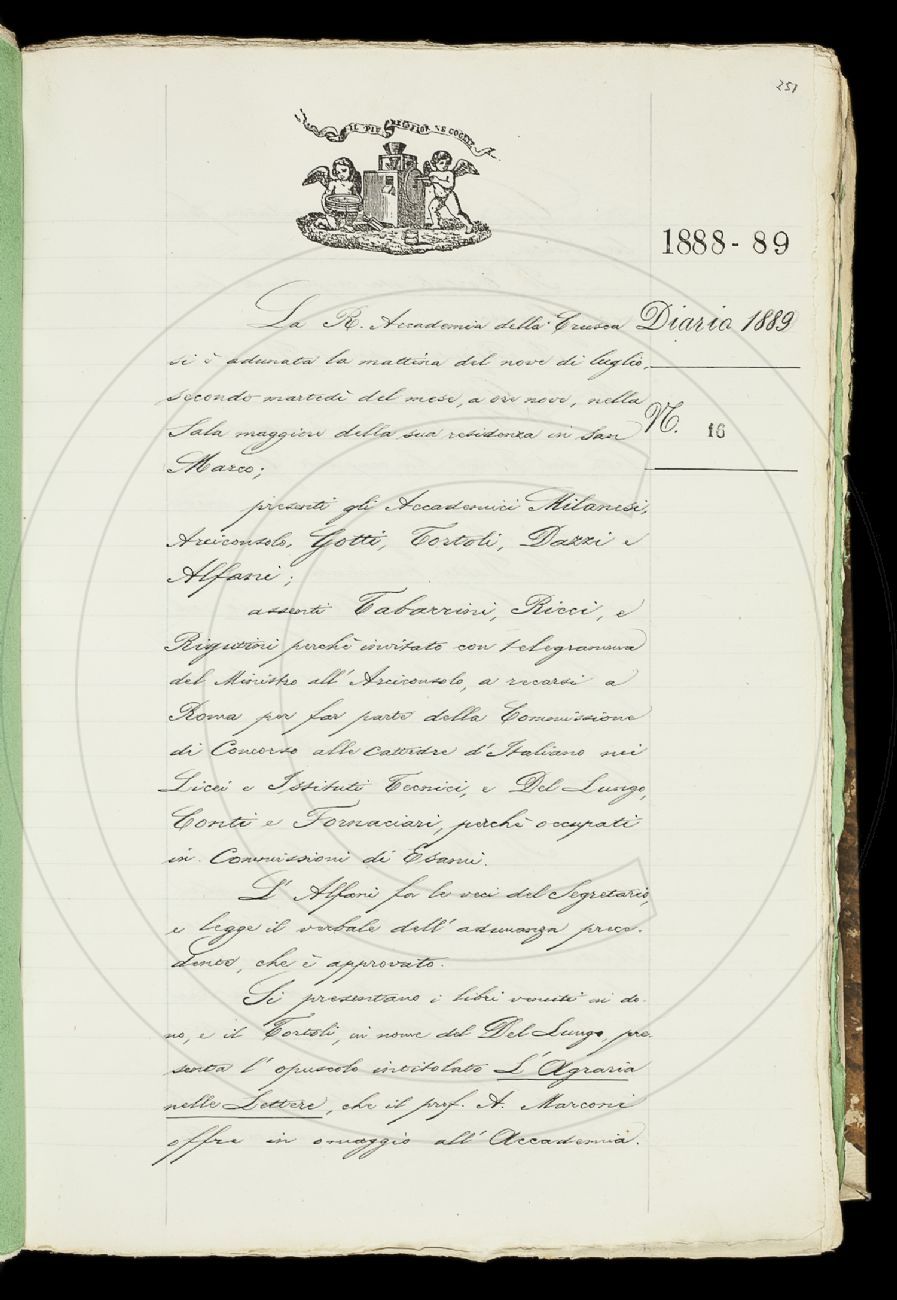 251
IL PIÙ BEL FIOR NE COGLIE
1888-89
Diario 1889
N. 16
La R. Accademia della Crusca
si è adunata la mattina del nove di luglio,
secondo martedì del mese, a ore nove, nella
Sala maggiore della sua residenza in San
Marco;
presenti gli Accademici Milanesi,
Arciconsolo, Gotti, Tortoli, Dazzi e
Alfani;
assenti Tabarrini, Ricci, e
Rigutini perchè invitato con telegramma
del Ministro all'Arciconsolo, a recarsi a
Roma per far parte della Commissione
di Concorso alle cattedre d'Italiano nei
Licei e Istituti Tecnici, e Del Lungo,
Conti e Fornaciari, perchè occupati
in Commissioni di Esami.
L'Alfani fa le veci del Segretario,
e legge il verbale dell'adunanza prece-
dente, che è approvato.
Si presentano i libri venuti in do-
no, e il Tortoli, in nome del Del Lungo, pre-
senta l'opuscolo intitolato L'Agraria
nelle Lettere, che il prof. A. Marconi
offre in omaggio all'Accademia.